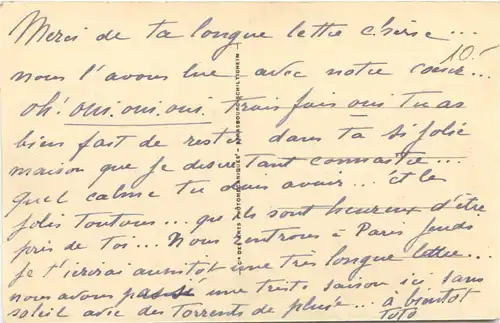 Merci de ta longue lettre chérie...
10.-
nous l'avons lue avec notre cœur...
oh! oui. oui. oui. trois fois oui tu as
bien fait de rester dans ta si jolie
maison que je désire tant connaître...
quel calme tu dois avoir... et le
jolis toutous... que ils sont heureux d'être
près de toi... Nous rentrons à Paris jeudi
je t'écrirai aussitôt une très longue lettre...
nous avons passé une triste saison ici sans
soleil avec des torrents de pluie... à bientôt
Toto
STRASBOURG-SCHILTIGHEIM